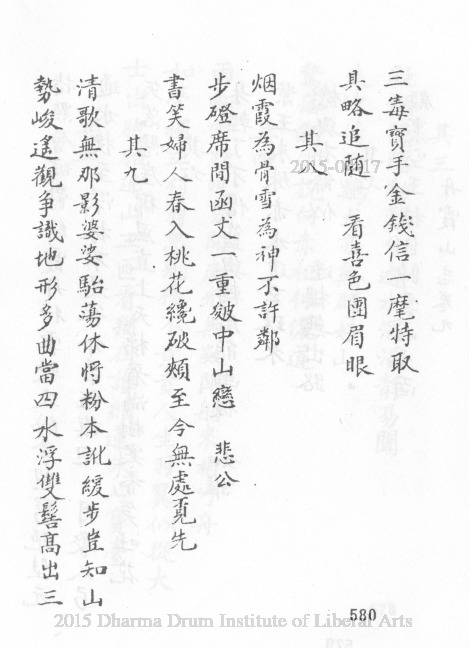 三毒寶手金錢信麾特取
具略追隨　看喜色團眉眼
其八
烟霞為骨雪為神不許鄰
步磴席間函丈一重皴中山戀　悲公
書笑婦人春入桃花纔破頰至今無處覓先
其九
清歌無那影婆娑駘蕩休將粉本訛緩步豈知山
勢峻遙觀爭識地形多曲當四水浮雙髻高出三
580
2015-03-17
2015 Dharma Drum Institute of Liberal Arts